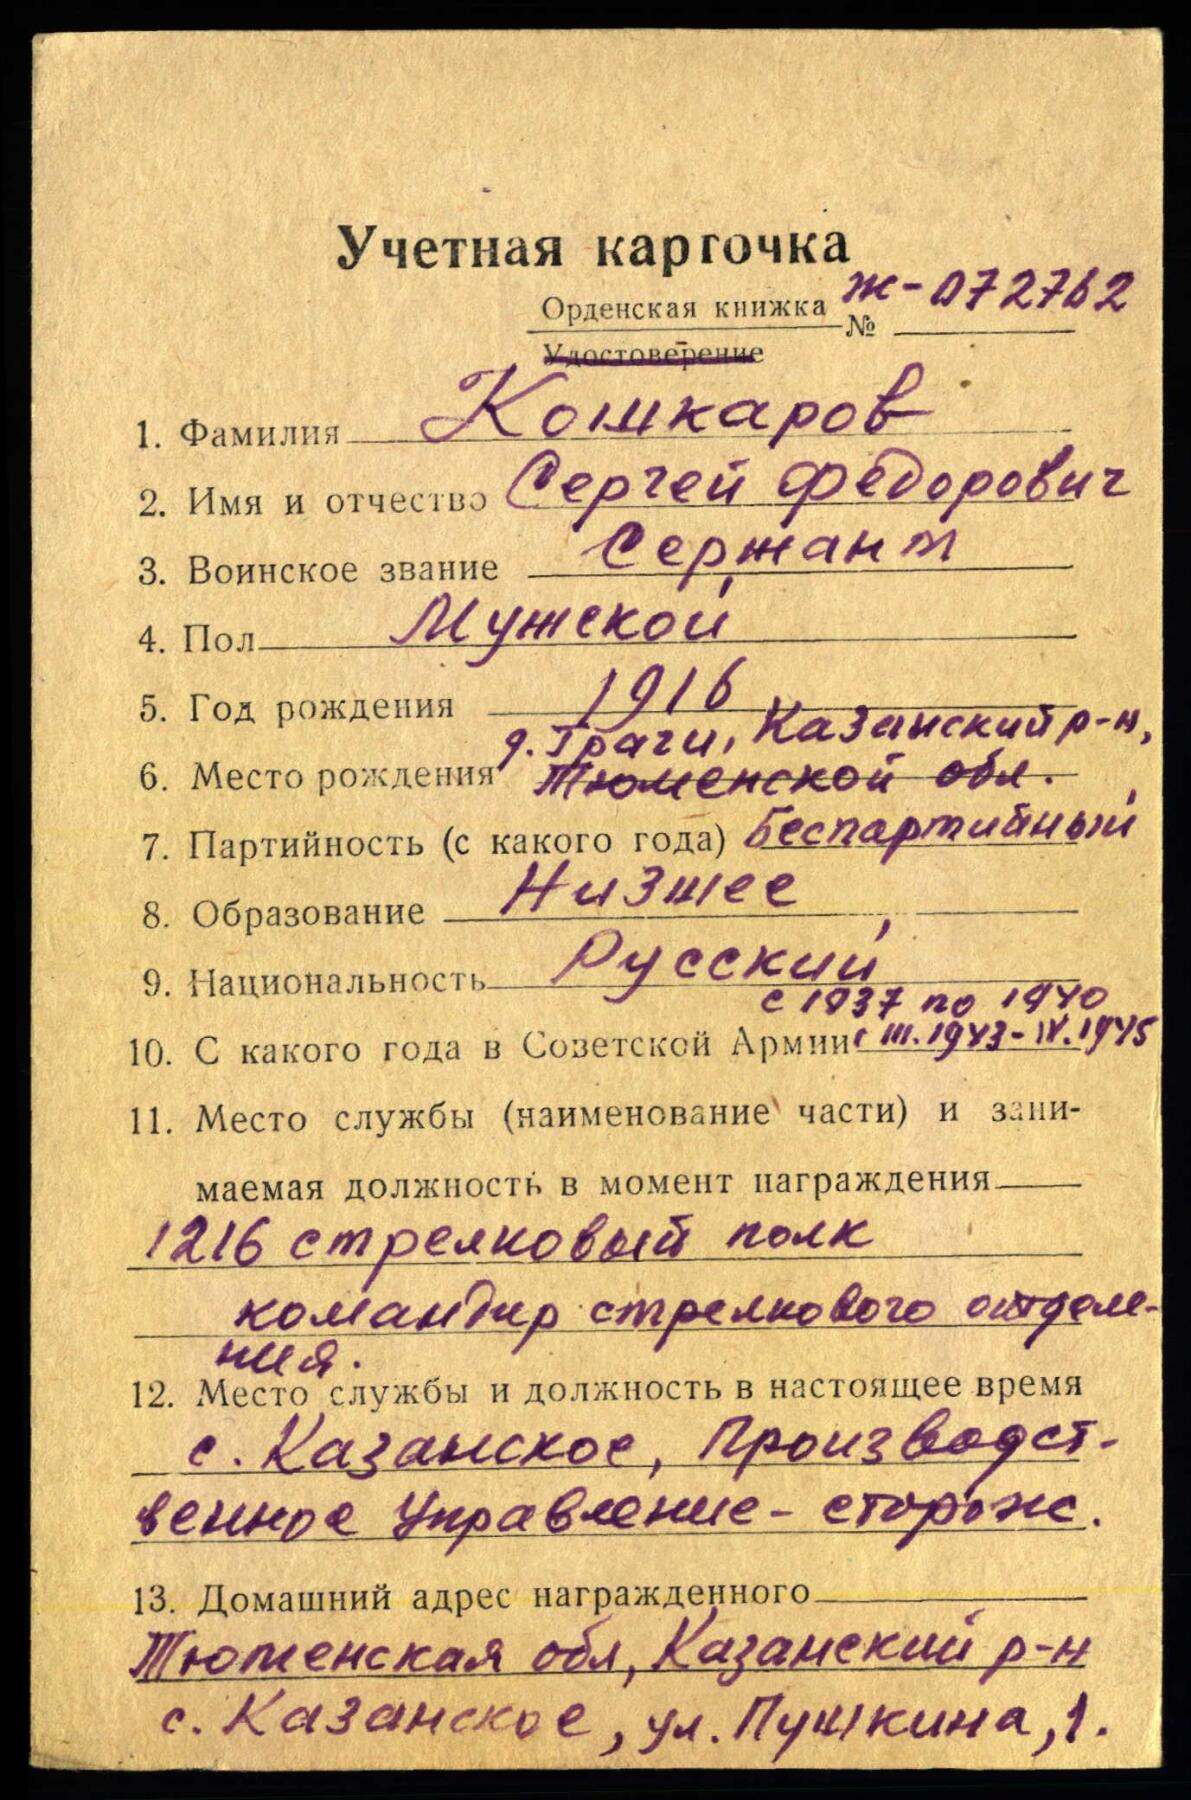 Учетная карточка
Орденская книжка № Ж-072762
Удостоверение
1. Фамилия Кошкаров
2. Имя и отчество Сергей Федорович
3. Воинское звание Сержант
4. Пол Мужской
5. Год рождения 1916
д. Грачи, Казанский р-н,
6. Место рождения Тюменской обл.
7. Партийность (с какого года) Беспартийный
8. Образование Низшее
9. Национальность Русский
с 1937 по 1940
10. С какого года в Советской Армии с III.1943-IV.1945
11. Место службы (наименование части) и зани-
маемая должность в момент награждения
1216 стрелковый полк
командир стрелкового отделе-
ния.
12. Место службы и должность в настоящее время
с. Казанское, Производст-
венное Управление - сторож.
13. Домашний адрес награжденного
Тюменская обл, Казанский р-н
с. Казанское, ул. Пушкина, 1.